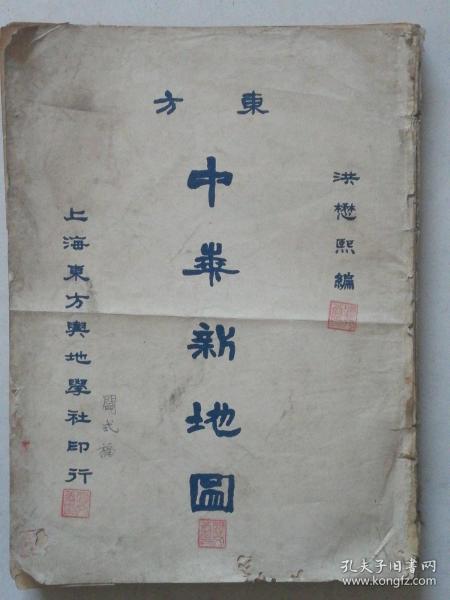 東方
洪懋熙編
中華新地圖
上海東方輿地學社印行
孔夫子旧书网
www.kongfz.com